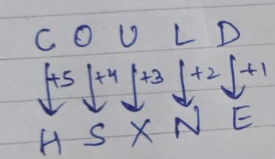 C O U L D
+5 +4 +3 +2 +1
H S X N E